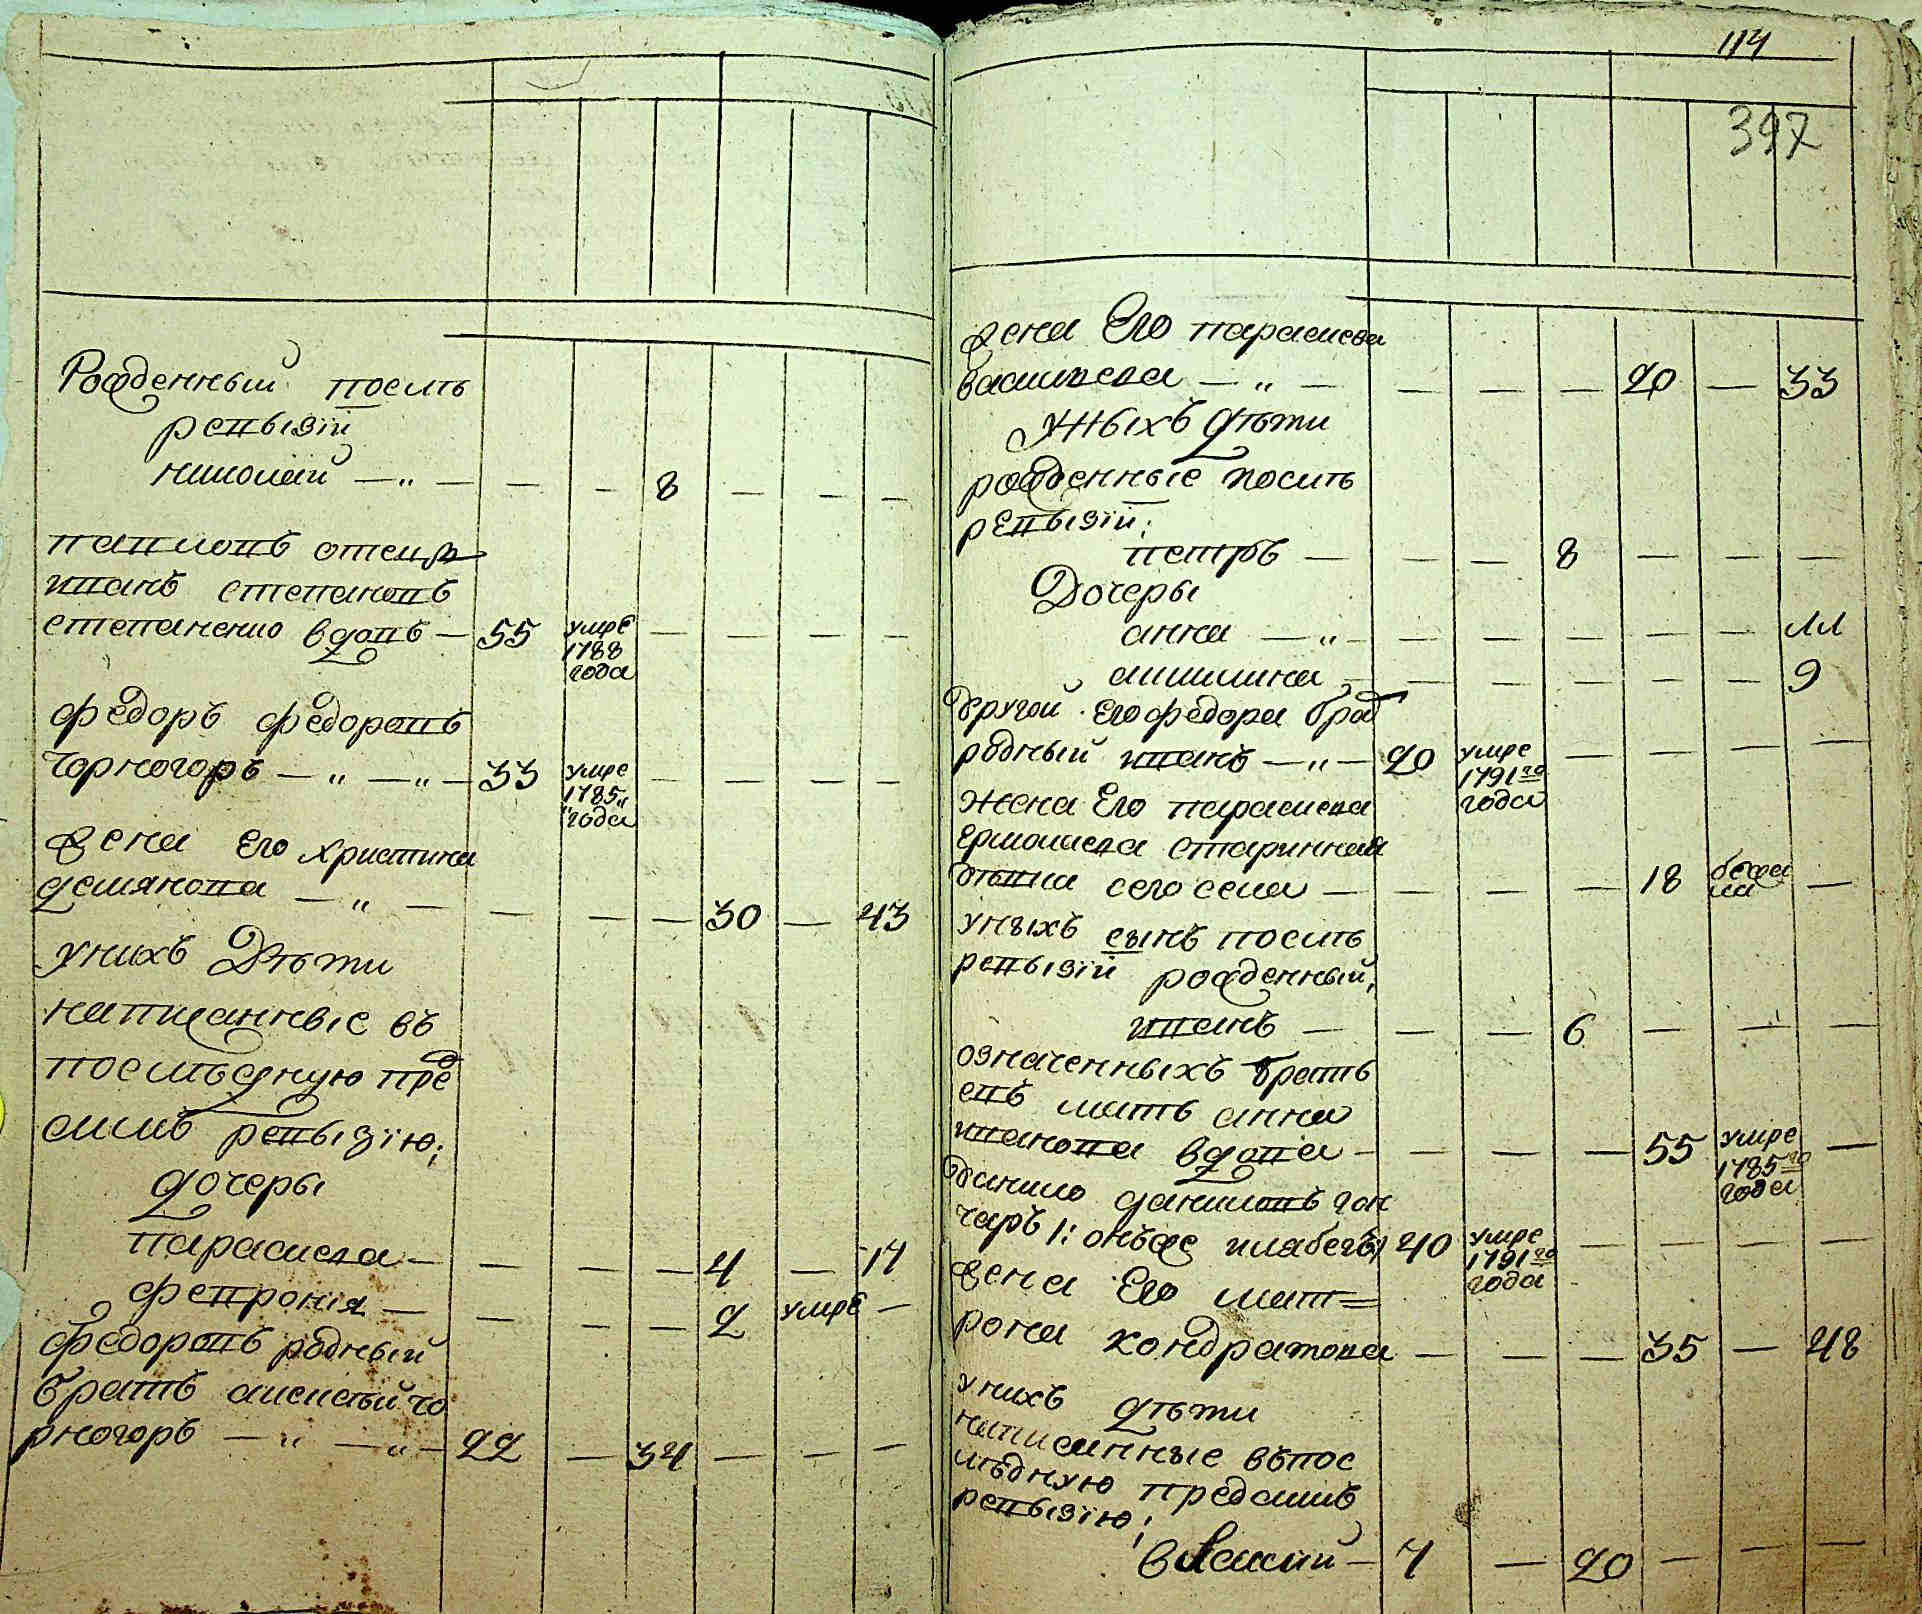 Рожденный послѣ
ревызіи
николай — „ — — — 8 — — —
павловъ отецъ
иванъ степановъ
степаненко вдовъ — 55 умре 1788 года — — — — —
федоръ федоровъ
чорногоръ — „ — „ — 33 умре 1785 „года — — — —
жена его христина
демянова — „ — — — — 30 — 43
унихъ Дѣти
написанные въ
послѣдную пред
симъ ревызію;
дочеры
параскева — — — — 4 — 17
февронія — — — — 2 умре —
федоровъ родный
братъ алексѣй чо
рногоръ — „ — „ — 22 — 34 — — —
114
397
жена Его параскева
василиева — „ — — — — 20 — 33
уныхъ дѣти
рожденные послѣ
ревызіи;
петръ — — — 8 — — —
Дочеры
анна — „ — — — — — — 11
акилина — — — — — — 9
другой его федора брат
родный иванъ — „ — 20 умре 1791го года — — — —
жена Его параскева
ермолаева старинная
дѣвка сего села — — — — 18 бежала —
уныхъ сынъ послѣ
ревызіи рожденный;
иванъ — — — 6 — — —
означенныхъ братъ
евъ мать анна
иванова вдова — — — — 55 умре 1785го года —
данило даниловъ гон
чаръ /: онъже книабегъ:/ 40 умре 1791го года — — — —
жена Его мат=
рона кондратова — — — 35 — 48
унихъ дѣти
написанные въпос
лѣдную предсимъ
ревызію;
василий — 7 — 20 — — —